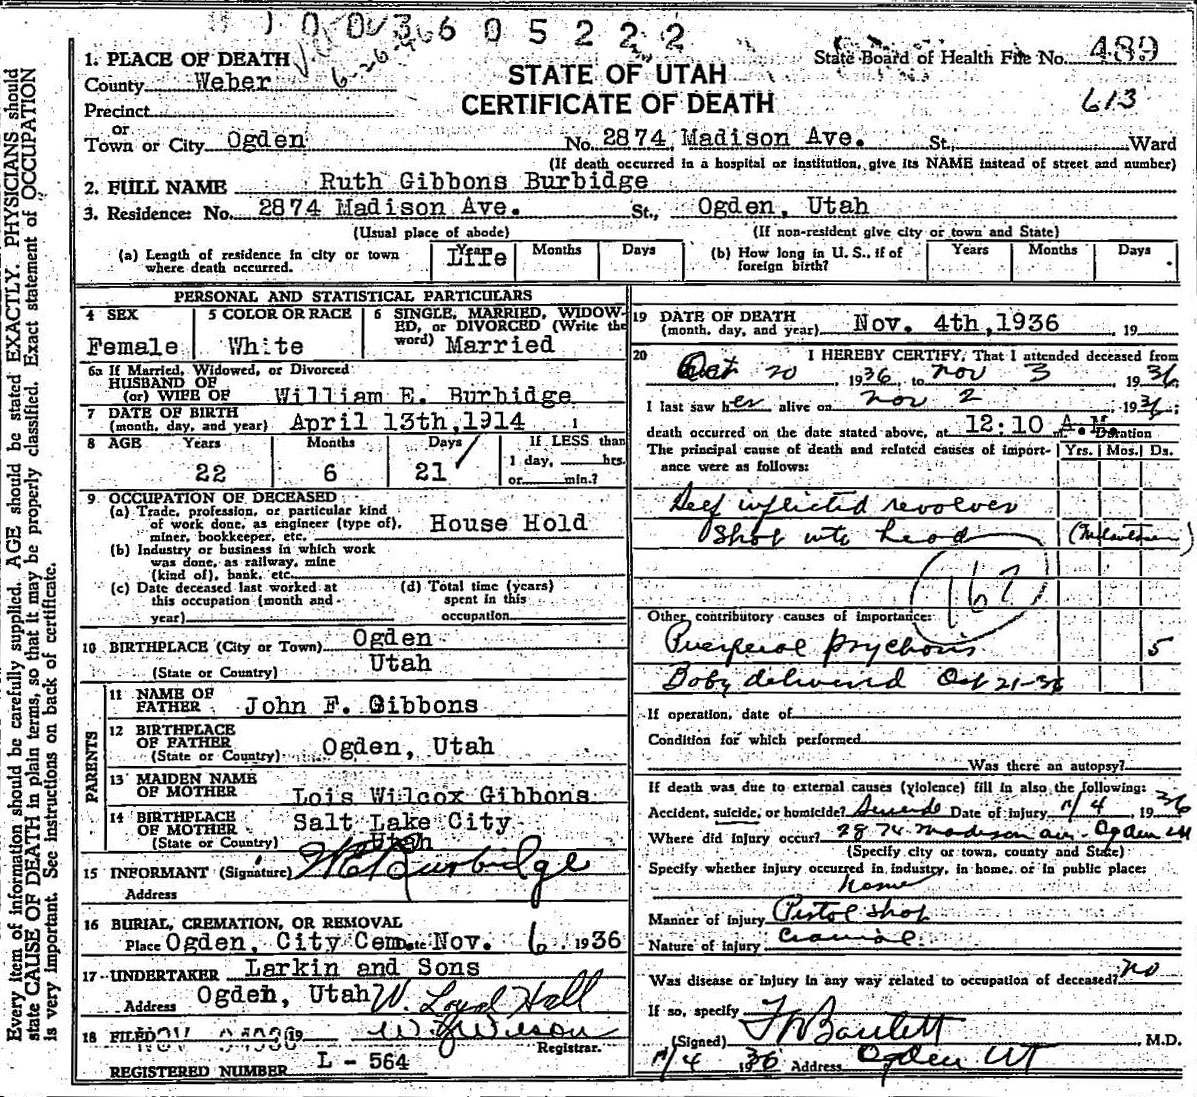 1003605222
6-26-
State Board of Health File No. 489
613
STATE OF UTAH
CERTIFICATE OF DEATH
1. PLACE OF DEATH
County Weber
Precinct
or
Town or City Ogden No. 2874 Madison Ave. St., Ward
(If death occurred in a hospital or institution, give its NAME instead of street and number)
2. FULL NAME Ruth Gibbons Burbidge
3. Residence: No. 2874 Madison Ave. St., Ogden, Utah
(Usual place of abode) (If non-resident give city or town and State)
(a) Length of residence in city or town where death occurred. Years Life Months Days
(b) How long in U. S., if of foreign birth? Years Months Days
PERSONAL AND STATISTICAL PARTICULARS
4 SEX Female
5 COLOR OR RACE White
6 SINGLE, MARRIED, WIDOWED, or DIVORCED (Write the word) Married
6a If Married, Widowed, or Divorced
HUSBAND OF
(or) WIFE OF William E. Burbidge
7 DATE OF BIRTH
(month, day, and year) April 13th, 1914 1
8 AGE Years Months Days If LESS than
22 6 21 1 day, hrs.
or min.?
9 OCCUPATION OF DECEASED
(a) Trade, profession, or particular kind of work done, as engineer (type of), miner, bookkeeper, etc. House Hold
(b) Industry or business in which work was done, as railway, mine (kind of), bank, etc.
(c) Date deceased last worked at this occupation (month and year)
(d) Total time (years) spent in this occupation
10 BIRTHPLACE (City or Town) Ogden
(State or Country) Utah
PARENTS
11 NAME OF FATHER John F. Gibbons
12 BIRTHPLACE OF FATHER
(State or Country) Ogden, Utah
13 MAIDEN NAME OF MOTHER Lois Wilcox Gibbons
14 BIRTHPLACE OF MOTHER
(State or Country) Salt Lake City
Utah
15 INFORMANT (Signature) W E Burbidge
Address
16 BURIAL, CREMATION, OR REMOVAL
Place Ogden, City Cem. Date Nov. 6, 1936
17 UNDERTAKER Larkin and Sons
Address Ogden, Utah W. Loyd Hall
18 FILED NOV 19
Registrar.
REGISTERED NUMBER L - 564
19 DATE OF DEATH
(month, day, and year) Nov. 4th, 1936 19
20 I HEREBY CERTIFY, That I attended deceased from
Oct 20 1936, to Nov 3, 1936
I last saw her alive on Nov 2 1936;
death occurred on the date stated above, at 12:10 A.M.
The principal cause of death and related causes of importance were as follows:
Duration
Yrs. Mos. Ds.
Self inflicted revolver
shot into head
167
Other contributory causes of importance:
Puerperal psychosis 5
Baby delivered Oct 21-36
If operation, date of
Condition for which performed
Was there an autopsy?
If death was due to external causes (violence) fill in also the following:
Accident, suicide, or homicide? Suicide Date of injury 11/4, 1936
Where did injury occur? 2874 Madison ave. Ogden Ut
(Specify city or town, county and State)
Specify whether injury occurred in industry, in home, or in public place:
Home
Manner of Injury Pistol shot
Nature of injury Cranial
Was disease or injury in any way related to occupation of deceased? no
If so, specify
(Signed) Bartlett M.D.
11/4 1936 Address Ogden UT
Every item of information should be carefully supplied. AGE should be stated EXACTLY. PHYSICIANS should
state CAUSE OF DEATH in plain terms, so that it may be properly classified. Exact statement of OCCUPATION
is very important. See instructions on back of certificate.